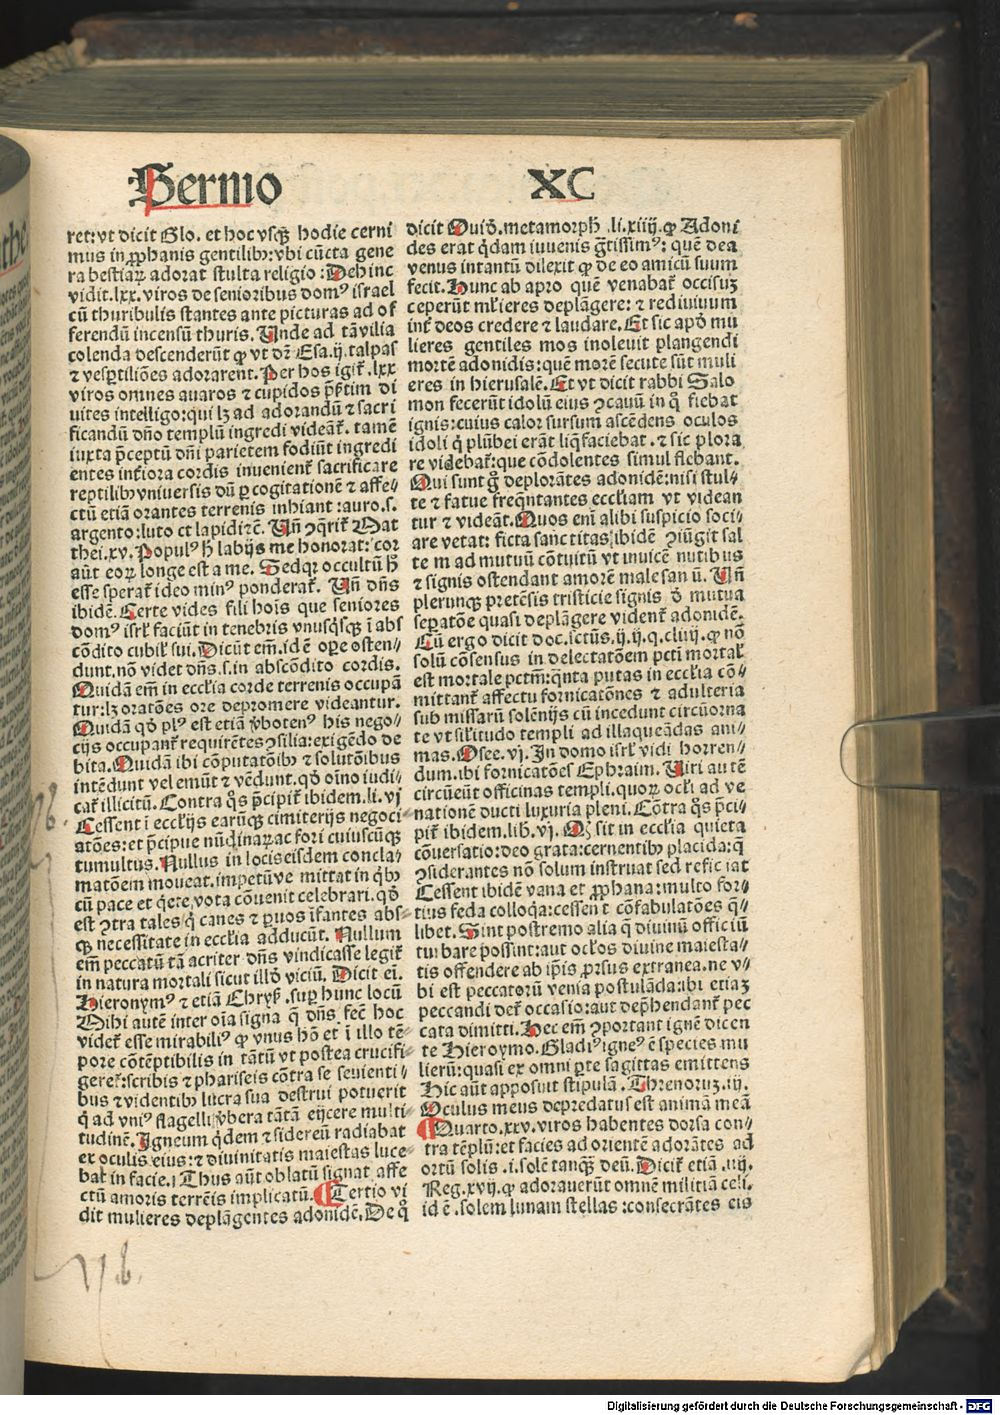 Sermo XC
ret: vt dicit Glo. et hoc vsqꝫ hodie cerni
mus in ꝓphanis gentilibꝰ: vbi cūcta gene
ra bestiaꝝ adorat stulta religio: Dehinc
vidit .lxx. viros de senioribus domꝰ israel
cū thuribulis stantes ante picturas ad of
ferendū incensū thuris. Unde ad tā vilia
colenda descenderūt ꝙ vt dr̄ Esa. ij. talpas
⁊ vesꝑtiliōes adorarent. Per hos igit̉ .lxx
viros omnes auaros ⁊ cupidos p̄sertim di
uites intelligo: qui lꝫ ad adorandū ⁊ sacri
ficandū dn̄o templū ingredi videāt̉. tamē
iuxta p̄ceptū dn̄i parietem fodiūt ingredi
entes inţiora cordis inuenient̉ sacrificare
reptilibꝰ vniuersis dū ꝑ cogitationē ⁊ affe-
ctū etiā orantes terrenis inhiant: auro .s.
argento: luto et lapidi ⁊c̄. Un̄ ꝯq̄rit̉ Mat
thei. xv. Populꝰ hic labijs me honorat: cor
aūt eoꝝ longe est a me. Sed qꝛ occultū hoc
esse sperat̉ ideo minꝰ ponderat̉. Un̄ dn̄s
ibidē. Certe vides fili hoīs que seniores
domꝰ isrl̄ faciūt in tenebris vnusq̄sqꝫ ī abs
cōdito cubil̉ sui. Dicūt em̄. id ē oꝑe osten-
dunt. nō videt dn̄s .s. in abscōdito cordis.
Quidā em̄ in ecclia corde terrenis occupā
tur: lꝫ oratōes ore depromere videantur.
Quidā qd̄ plꝰ est etiā ṽbotenꝰ his nego-
cijs occupant̉ requirētes ꝯsilia: exigēdo de
bita. Quidā ibi cōputatōibꝰ ⁊ solutōibus
intēdunt vel emūt ⁊ vēdunt. qd̄ oīno iudi-
cat̉ illicitū. Contra q̄s p̄cipit̉ ibidem. li. vj
Cessent ī eccl̄ijs earūqꝫ cimiterijs negoci-
atōes: et p̄cipue nūdinaꝝ ac fori cuiuscūqꝫ
tumultus. Nullus in locis eisdem concla-
matōem moueat. impetū ve mittat in q̄bꝰ
cū pace et q̄ete vota cōuenit celebrari. qd̄
est ꝯtra tales q̄ canes ⁊ ꝑuos īfantes abs-
qꝫ necessitate in eccl̄ia adducūt. Nullum
em̄ peccatū tā acriter dn̄s vindicasse legit̉
in natura mortali sicut illd̄ viciū. Dicit ei.
Hieronymꝰ ⁊ etiā Chrys̄. suꝑ hunc locū
Mihi autē inter oīa signa q̄ dn̄s fec̄ hoc
videt̉ esse mirabiliꝰ ꝙ vnus hō et ī illo tē-
pore cōtēptibilis in tātū vt postea crucifi-
geret̉: scribis ⁊ phariseis cōtra se seuienti-
bus ⁊ videntibꝰ lucra sua destrui potuerit
q̄ ad vniꝰ flagelli ṽbera tātā eijcere multi-
tudinē. Igneum q̄dem ⁊ sidereū radiabat
ex oculis eius: ⁊ diuinitatis maiestas luce-
bat in facie. Thus aūt oblatū signat affe
ctū amoris terrēis implicatū. Tertio vi
dit mulieres deplāgentes adonidē. De q̄
dicit Ouid̄. metamorph̄ .li. xiiij. ꝙ Adoni
des erat q̄dam iuuenis gr̄tissimꝰ: quē dea
venus intantū dilexit ꝙ de eo amicū suum
fecit. Hunc ab apro quē venabat̉ occisuꝫ
ceperūt ml̄ieres deplāgere: ⁊ rediuiuum
int̉ deos credere ⁊ laudare. Et sic apd̄ mu
lieres gentiles mos inoleuit plangendi
mortē adonidis: quē morē secute sūt muli
eres in hierusalē. Et vt dicit rabbi Salo
mon fecerūt idolū eius ꝯcauū in q̄ fiebat
ignis: cuius calor sursum ascēdens oculos
idoli q̄ plūbei erāt liq̄faciebat. ⁊ sic plora
re videbat̉: que cōdolentes simul flebant.
Qui sunt g̊ deplorātes adonidē: nisi stul-
te ⁊ fatue freq̄ntantes eccl̄iam vt videan
tur ⁊ videāt. Quos em̄ alibi suspicio soci-
are vetat: ficta sanctitas ibidē ꝯiūgit sal
te m ad mutuū cōtuitū vt inuicē nutibus
⁊ signis ostendant amorē male sanū. Un̄
plerunqꝫ pretēsis tristicie signis d̄ mutua
seꝑatōe quasi deplāgere vident̉ adonidē.
Cū ergo dicit doc. sctūs, ij. ij. q. cliiij. ꝙ nō
solū cōsensus in delectatōem pctī mortal̓
est mortale pctm̄: q̄nta putas in eccl̄ia cō-
mittant̉ affectu fornicatōnes ⁊ adulteria
sub missarū solēnijs cū incedunt circūorna
te vt sil̄itudo templi ad illaqueādas ani-
mas. Osee. vj. In domo isrl̄ vidi horren-
dum. ibi fornicatōes Ephraim. Uiri autē
circūeūt officinas templi. quoꝝ ocl̄i ad ve
nationē ducti luxuria pleni. Cōtra q̄s p̄ci-
pit̉ ibidem. lib̄. vj. Qꝫ sit in eccl̄ia quieta
cōuersatio: deo grata: cernentibꝰ placida: q̄
ꝯsiderantes nō solum instruat sed reficiat
Cessent ibidē vana et ꝓphana: multo for-
tius feda colloq̄a: cessent cōfabulatōes q̄-
libet. Sint postremo alia q̄ diuinū officiū
turbare possint: aut ocl̄os diuine maiesta-
tis offendere ab ip̄is ꝓrsus extranea. ne v-
bi est peccatorū venia postulāda: ibi etiaꝫ
peccandi det̉ occasio: aut dep̄hendant̉ pec
cata dimitti. Hec em̄ ꝯportant ignē dicen
te Hieroymo. Gladiꝰ igneꝰ ē species mu
lierū: quasi ex omni ꝑte sagittas emittens
Hic aūt apposuit stipulā. Threnoruꝫ. iij.
Oculus meus depredatus est animā meā
Quarto. xxv. viros habentes dorsa con-
tra tēplū: et facies ad orientē adorātes ad
ortū solis .i. solē tanqꝫ deū. Dicit̉ etiā .iiij.
Reg. xvij. ꝙ adorauerūt omnē militiā celi.
id ē. solem lunam stellas: consecrātes eis
Digitalisierung gefördert durch die Deutsche Forschungsgemeinschaft - DFG